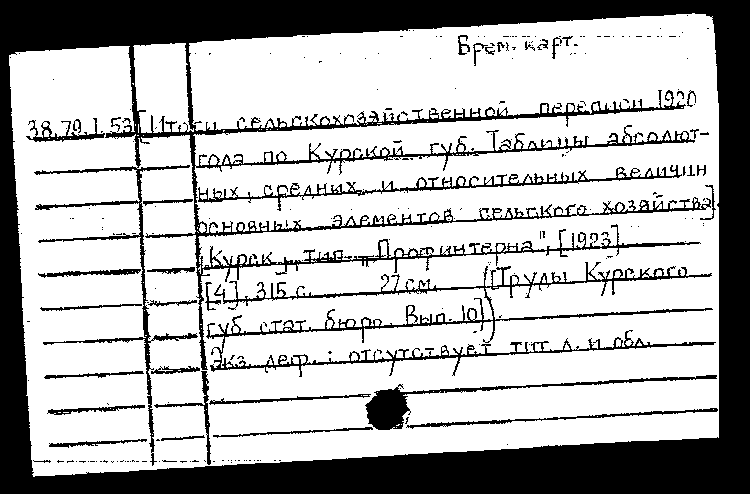 Врем. карт.
38.79.1.53 [Итоги сельскохозяйственной переписи 1920
года по Курской губ. Таблицы абсолют-
ных, средних и относительных величин
основных элементов сельского хозяйства].
[Курск], тип. "Профинтерна", [1923].
[4], 315 с. 27 см. ([Труды Курского
губ. стат. бюро. Вып. 10])
Экз. деф.: отсутствует тит. л. и обл.